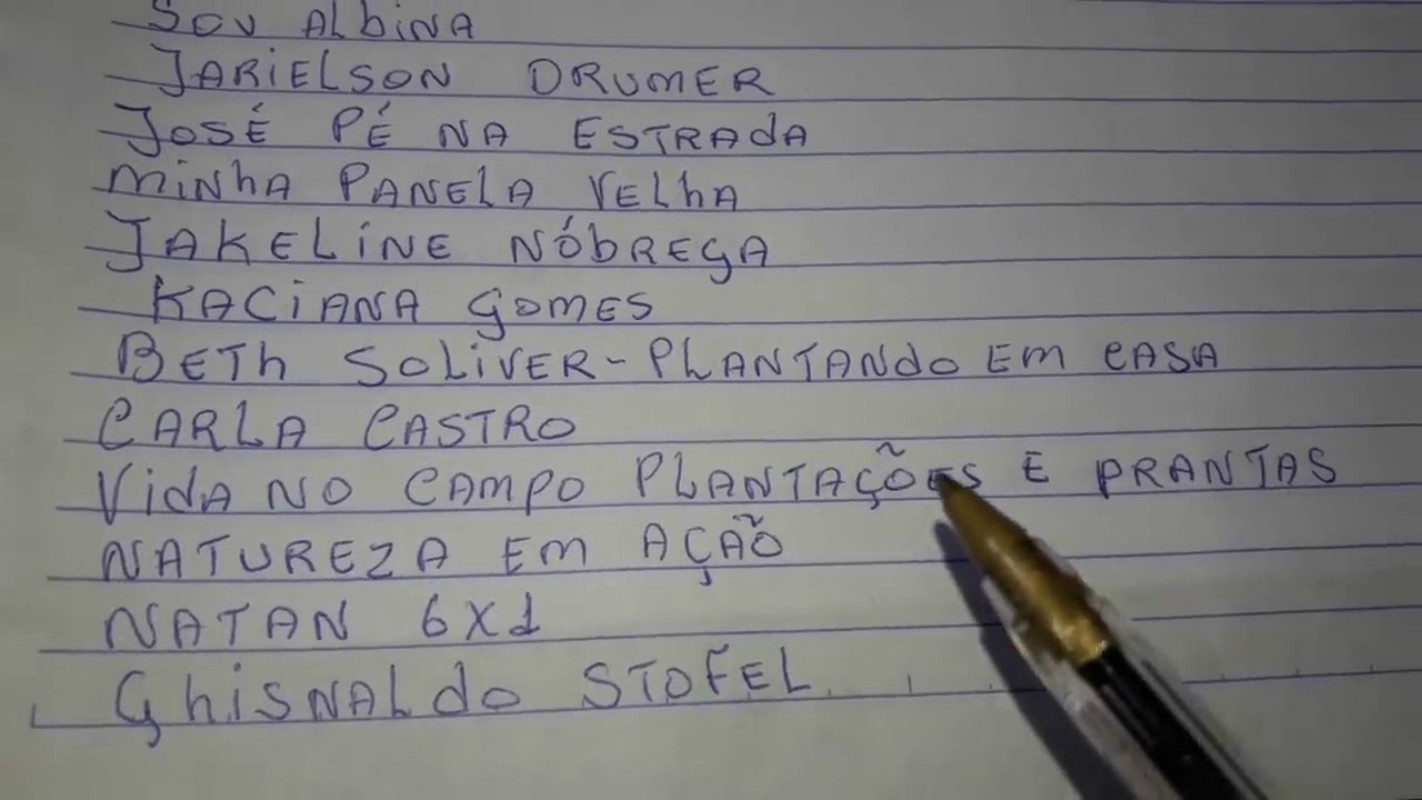 Sou Albina
Jarielson Drumer
José Pé na Estrada
Minha Panela Velha
Jakeline Nóbrega
Kaciana Gomes
Beth Soliver - Plantando em casa
Carla Castro
Vida no Campo Plantações e Prantas
Natureza em Ação
Natan 6x1
Ghisnaldo Stofel